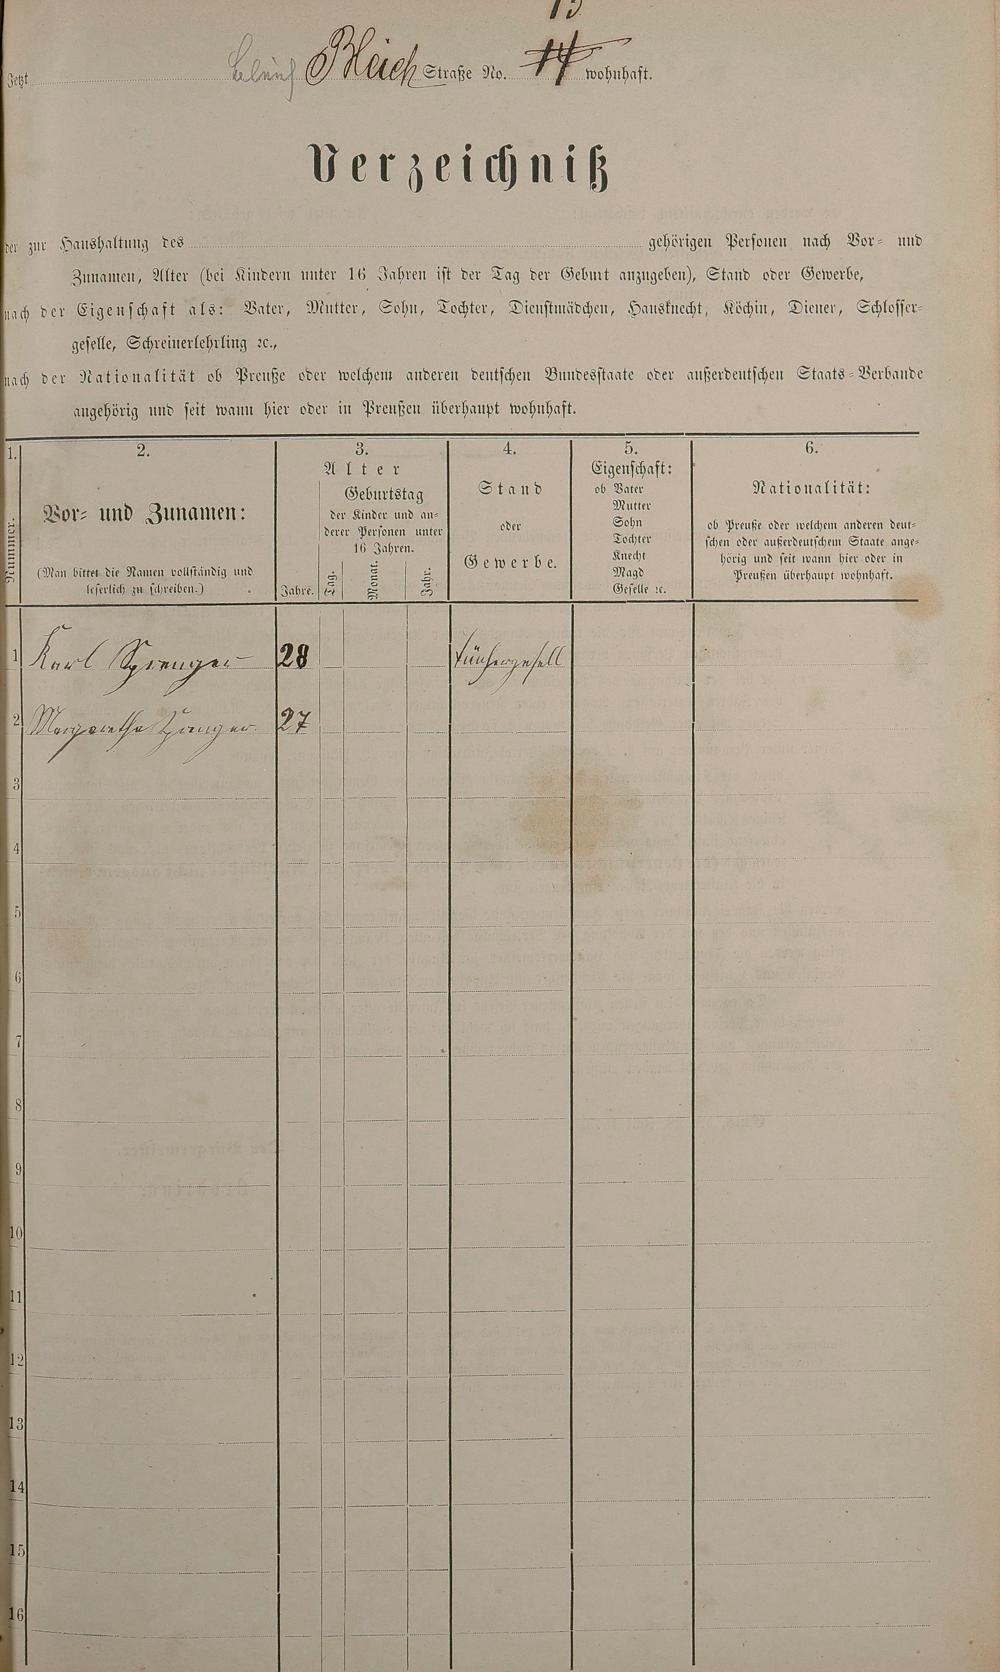 15
Jetzt Bleich Bleich Straße No. 14 wohnhaft.
Verzeichniß
der zur Haushaltung des gehörigen Personen nach Vor- und
Zunamen, Alter (bei Kindern unter 16 Jahren ist der Tag der Geburt anzugeben), Stand oder Gewerbe,
nach der Eigenschaft als: Vater, Mutter, Sohn, Tochter, Dienstmädchen, Hausknecht, Köchin, Diener, Schlosser-
geselle, Schreinerlehrling ꝛc.,
nach der Nationalität ob Preuße oder welchem anderen deutschen Bundesstaate oder außerdeutschen Staats-Verbande
angehörig und seit wann hier oder in Preußen überhaupt wohnhaft.
1.
Nummer.
2.
Vor- und Zunamen:
(Man bittet die Namen vollständig und
leserlich zu schreiben.)
3.
Alter
Jahre.
Geburtstag
der Kinder und an-
derer Personen unter
16 Jahren.
Tag.
Monat.
Jahr.
4.
Stand
oder
Gewerbe.
5.
Eigenschaft:
ob Vater
Mutter
Sohn
Tochter
Knecht
Magd
Geselle ꝛc.
6.
Nationalität:
ob Preuße oder welchem anderen deut-
schen oder außerdeutschem Staate ange-
hörig und seit wann hier oder in
Preußen überhaupt wohnhaft.
1 Karl Sprenger 28 Tünchergesell
2 Margarethe Sprenger 27
3
4
5
6
7
8
9
10
11
12
13
14
15
16